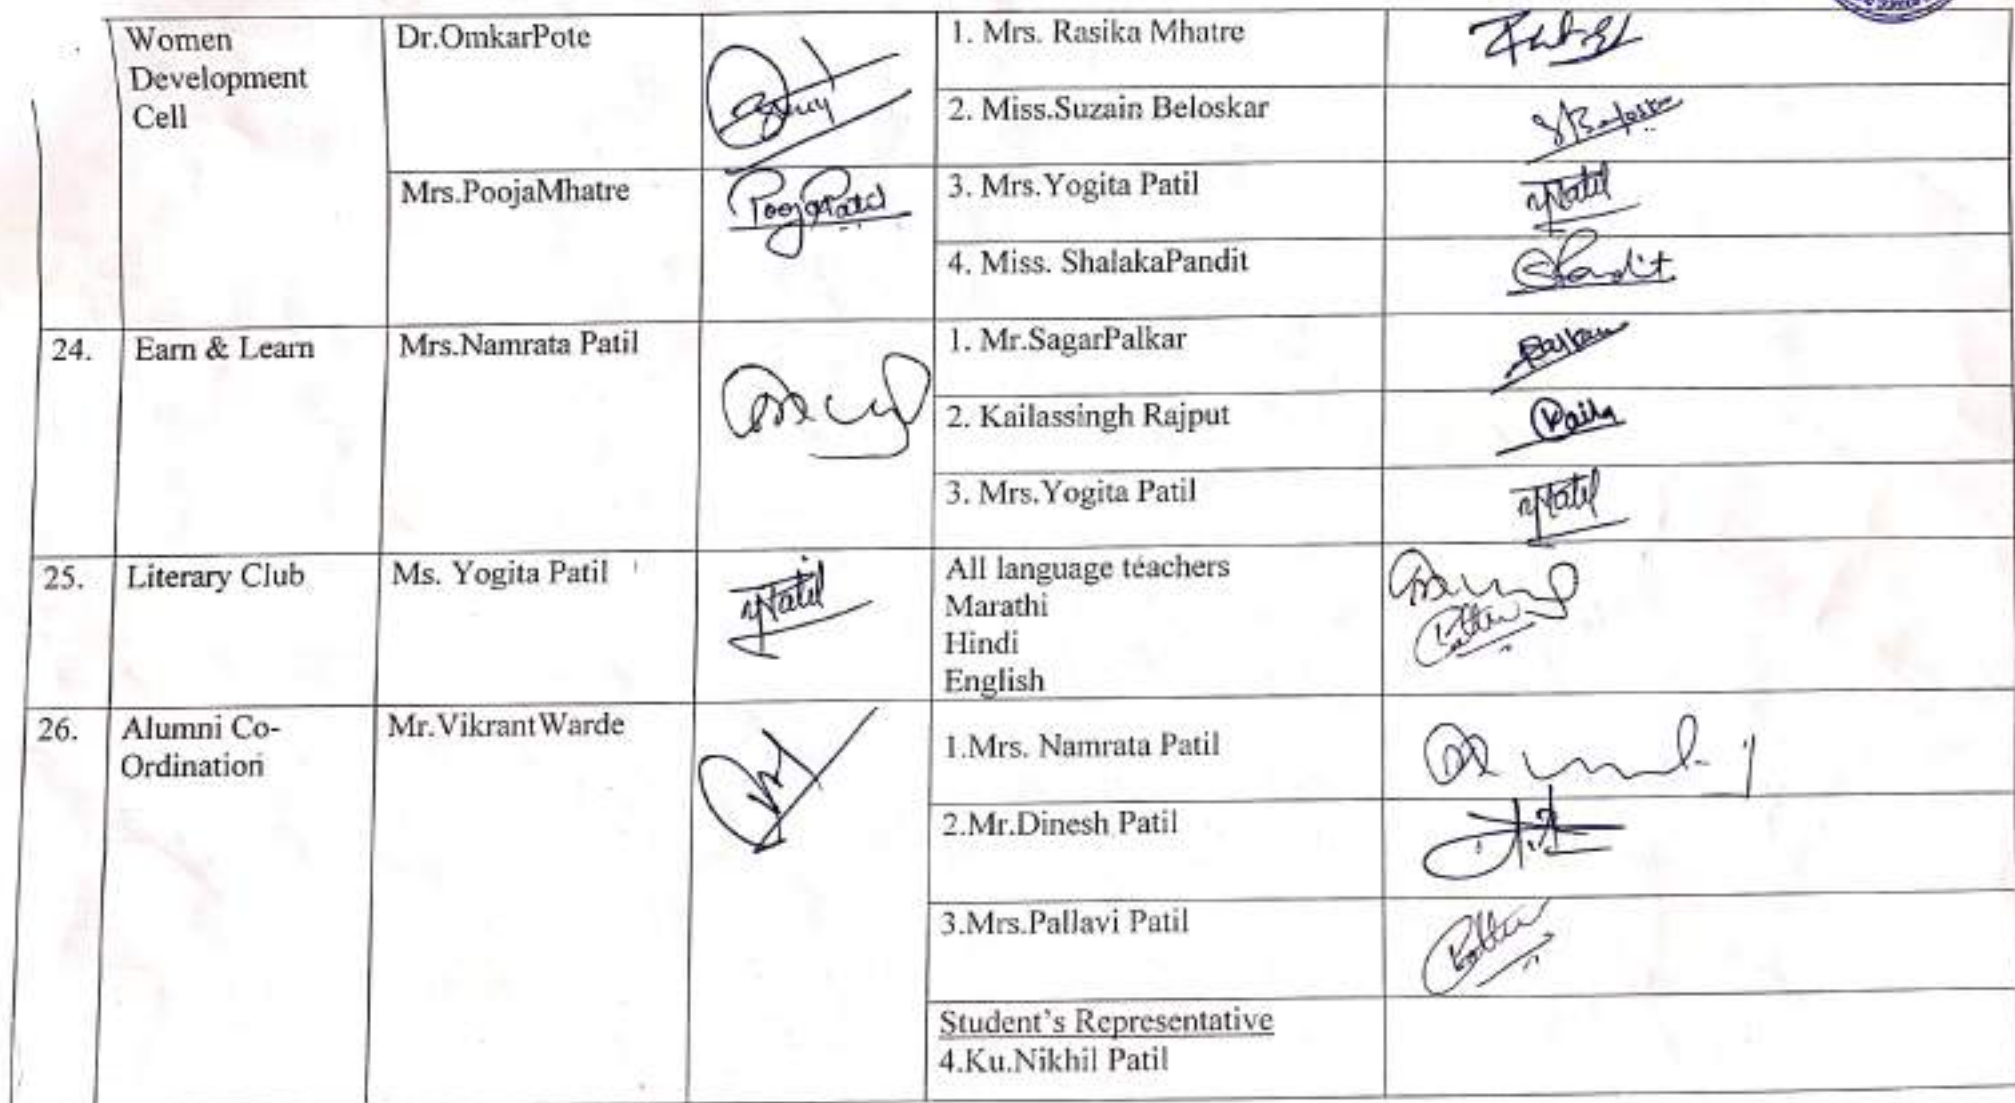 Women
Development
Cell
Dr.OmkarPote
1. Mrs. Rasika Mhatre
2. Miss.Suzain Beloskar
Mrs.PoojaMhatre
PoojaPatil
3. Mrs.Yogita Patil
YPatil
4. Miss. ShalakaPandit
SPandit
24.
Earn & Learn
Mrs.Namrata Patil
1. Mr.SagarPalkar
2. Kailassingh Rajput
3. Mrs.Yogita Patil
YPatil
25.
Literary Club
Ms. Yogita Patil
YPatil
All language teachers
Marathi
Hindi
English
26.
Alumni Co-
Ordination
Mr.VikrantWarde
1.Mrs. Namrata Patil
2.Mr.Dinesh Patil
3.Mrs.Pallavi Patil
Student's Representative
4.Ku.Nikhil Patil